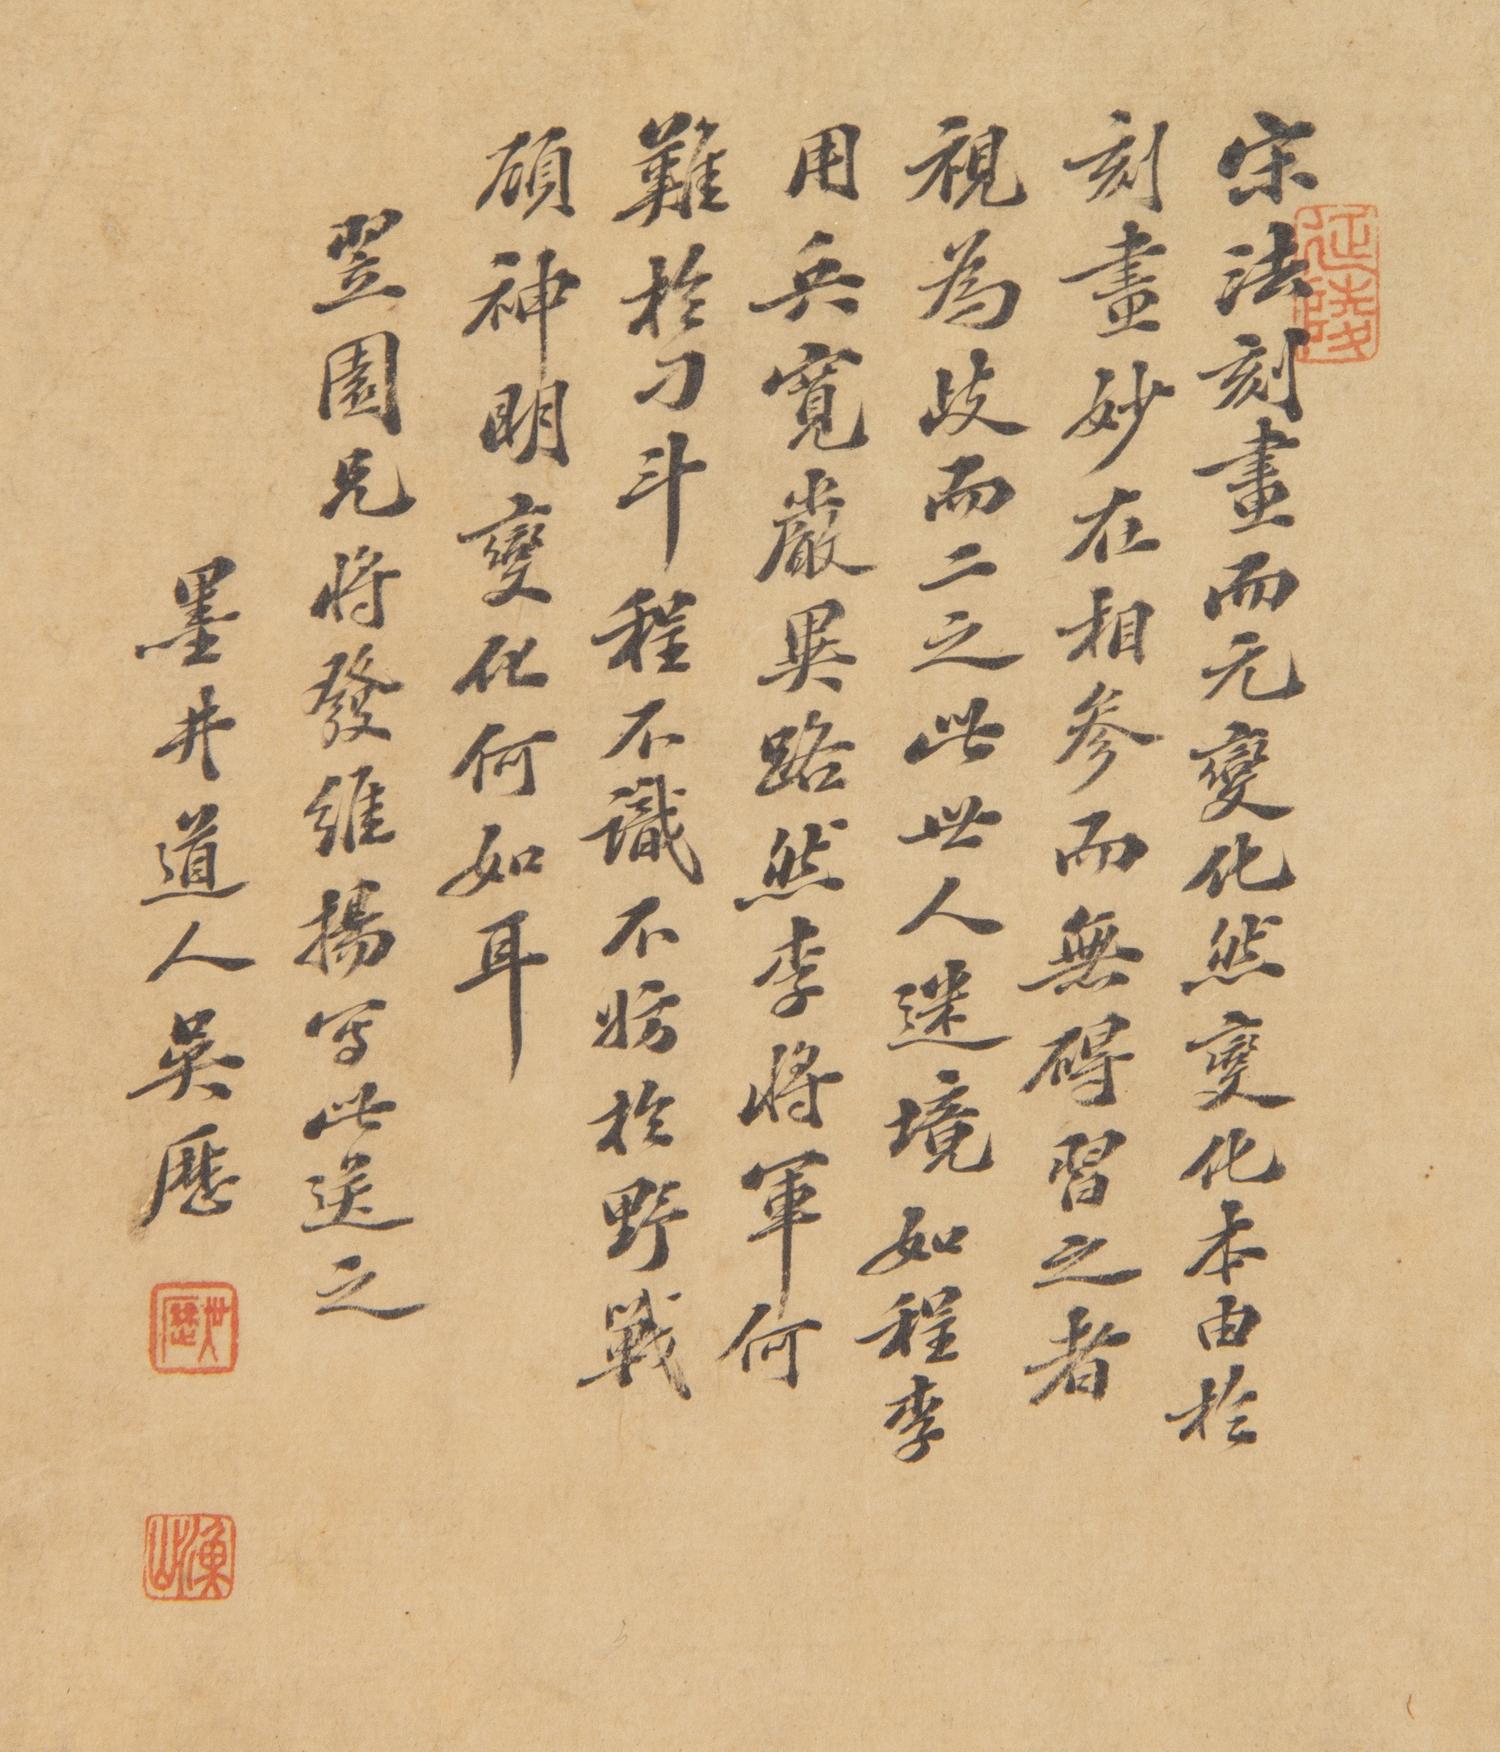 宋法刻畫而元變化然變化本由於
刻畫妙在相參而無碍習之者
視為歧而二之此世人迷境如程李
用兵寬嚴異路然李將軍何
難於刁斗程不識不妨於野戰
顧神明變化何如耳
翌園兄將發維揚寫此送之
墨井道人吳歷
延陵
歷世
漁山